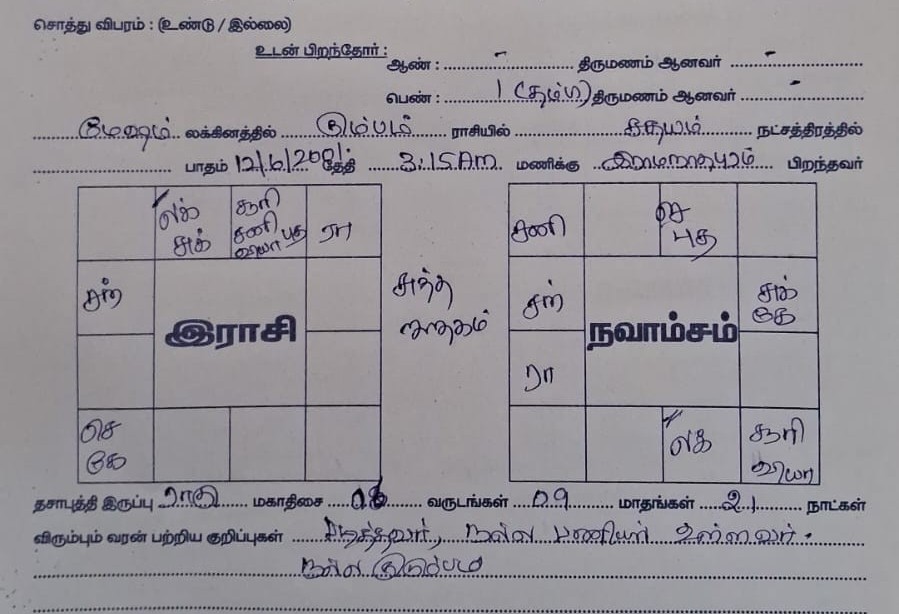 சொத்து விபரம் : (உண்டு / இல்லை)
உடன் பிறந்தோர் :
ஆண் : - திருமணம் ஆனவர் -
பெண் : 1 (தங்கை) திருமணம் ஆனவர் -
மேஷம் லக்கினத்தில் கும்பம் ராசியில் சதயம் நட்சத்திரத்தில்
பாதம் 12/6/2001 தேதி 3:15 Am மணிக்கு இராமநாதபுரம் பிறந்தவர்
லக் சுக்
சூரி சனி வியா புத
ரா
சந்
சுத்த ஜாதகம்
இராசி
செ கே
சனி
செ புத
சந்
சுக் கே
நவாம்சம்
ரா
லக்
சூரி வியா
தசாபுத்தி இருப்பு ராகு மகாதிசை 08 வருடங்கள் 09 மாதங்கள் 21 நாட்கள்
விரும்பும் வரன் பற்றிய குறிப்புகள் படித்தவர், நல்ல பணியில் உள்ளவர்.
நல்ல குடும்பம்